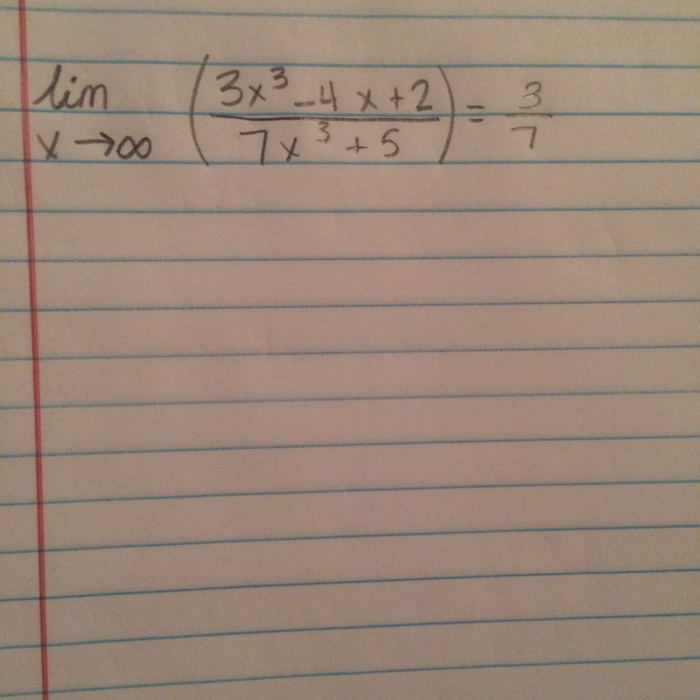 lim x→∞ (3x³ - 4x + 2 / 7x³ + 5) = 3/7